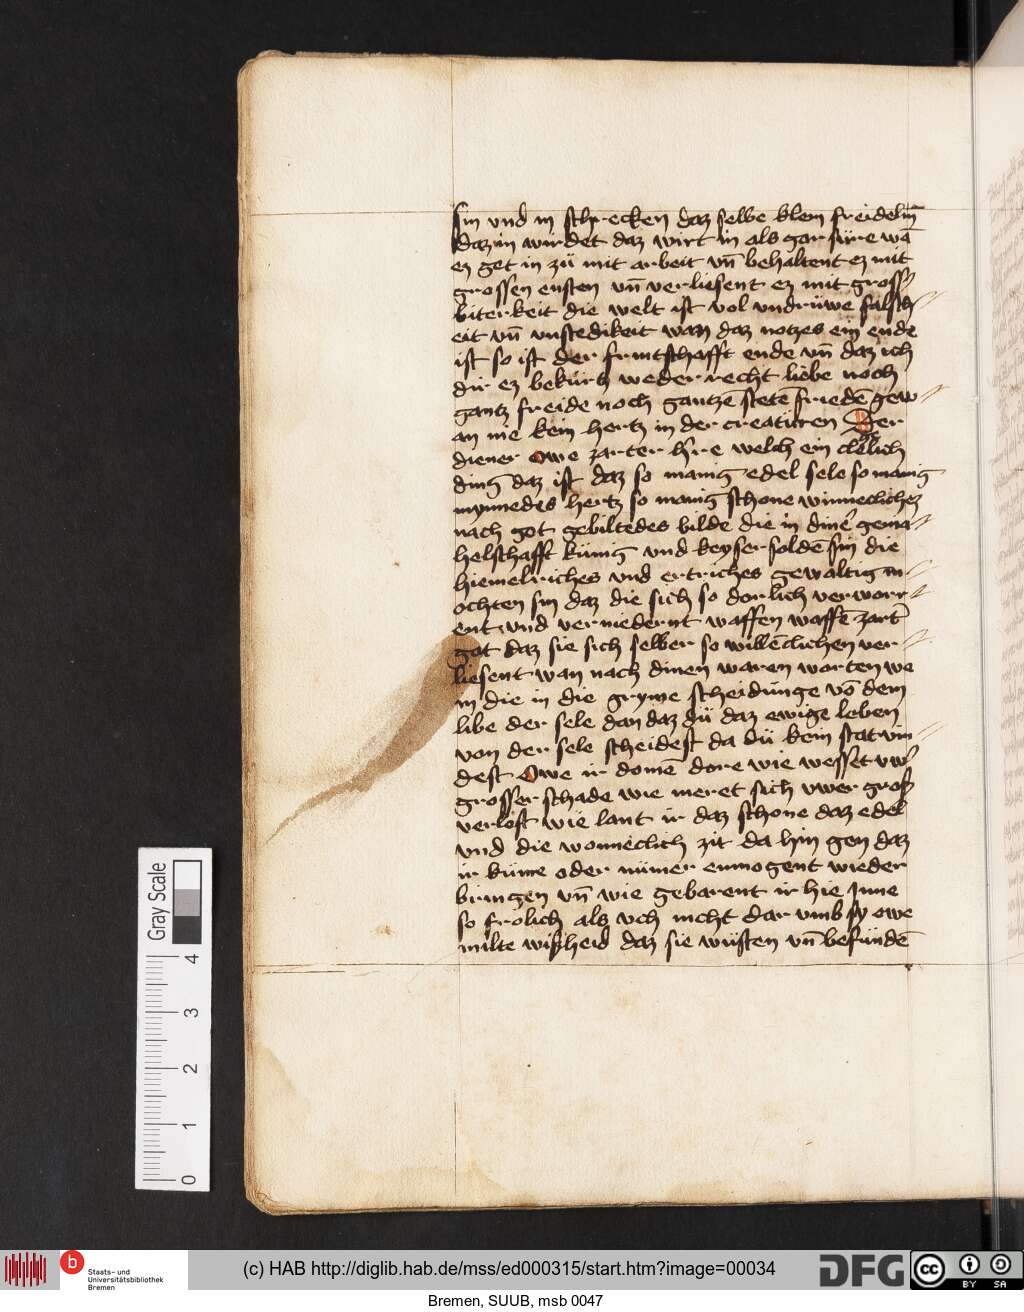 sin vnd in schrecken daz selbe klein freidelin̄
daz in wirdet daz wirt in als gar sure wā
ez get in zü mit arbeit vn̄ behaltent ez mit
grossen ensten vn̄ verliesent ez mit gross
biterkeit die welt ist vol vndrüwe falsch//
eit vn̄ vnstedikeit wan daz notzes ein ende
ist so ist der fruntschafft ende vn̄ daz ich
dir ez bekürtz weder recht liebe noch
gantz freide noch gantzē stetē friedē gew//
an nie kein hertz in der creatüren Der
diener Owe zarter h're welch ein clelich
ding daz ist daz so manig edel sele so manig
mynnedes hertz so manig schone winneclichez
nach got gebiltedes bilde die in dinē gema//
helschafft künig vnd keyser soldē sin die
hiemelriches vnd ertriches gewaltig m//
ochten sin daz die sich so dorlich verworr//
ent vnd verniedernt waffen waffē zart
got daz sie sich selber so willēclichen ver//
liesent wan nach dinen waren worten we
m die in die gryme scheidunge vō dem
libe der sele dan daz dü daz ewige leben
von der sele scheidest da dü kein stat vin//
dest Owe ir domē dore wie wesset vw'
grosser schade wie meret sich vwer groß
verlost wie lant ir daz schone daz edel
vnd die wonneclich zit da hin gen daz
ir küme oder nümer enmogent wieder
bringen vn̄ wie gebarent ir hie Jnne
so frolich als vch nicht dar vmb sy owe
milte wißheid daz sie wüsten vn̄ befündē
Gray Scale
4
3
2
1
0
b Staats- und
Universitätsbibliothek
Bremen
(c) HAB http://diglib.hab.de/mss/ed000315/start.htm?image=00034
DFG
cc BY SA
Bremen, SUUB, msb 0047